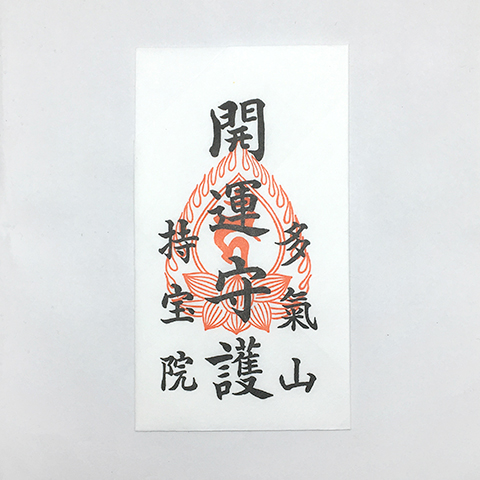 多氣山
開運守護
持宝院